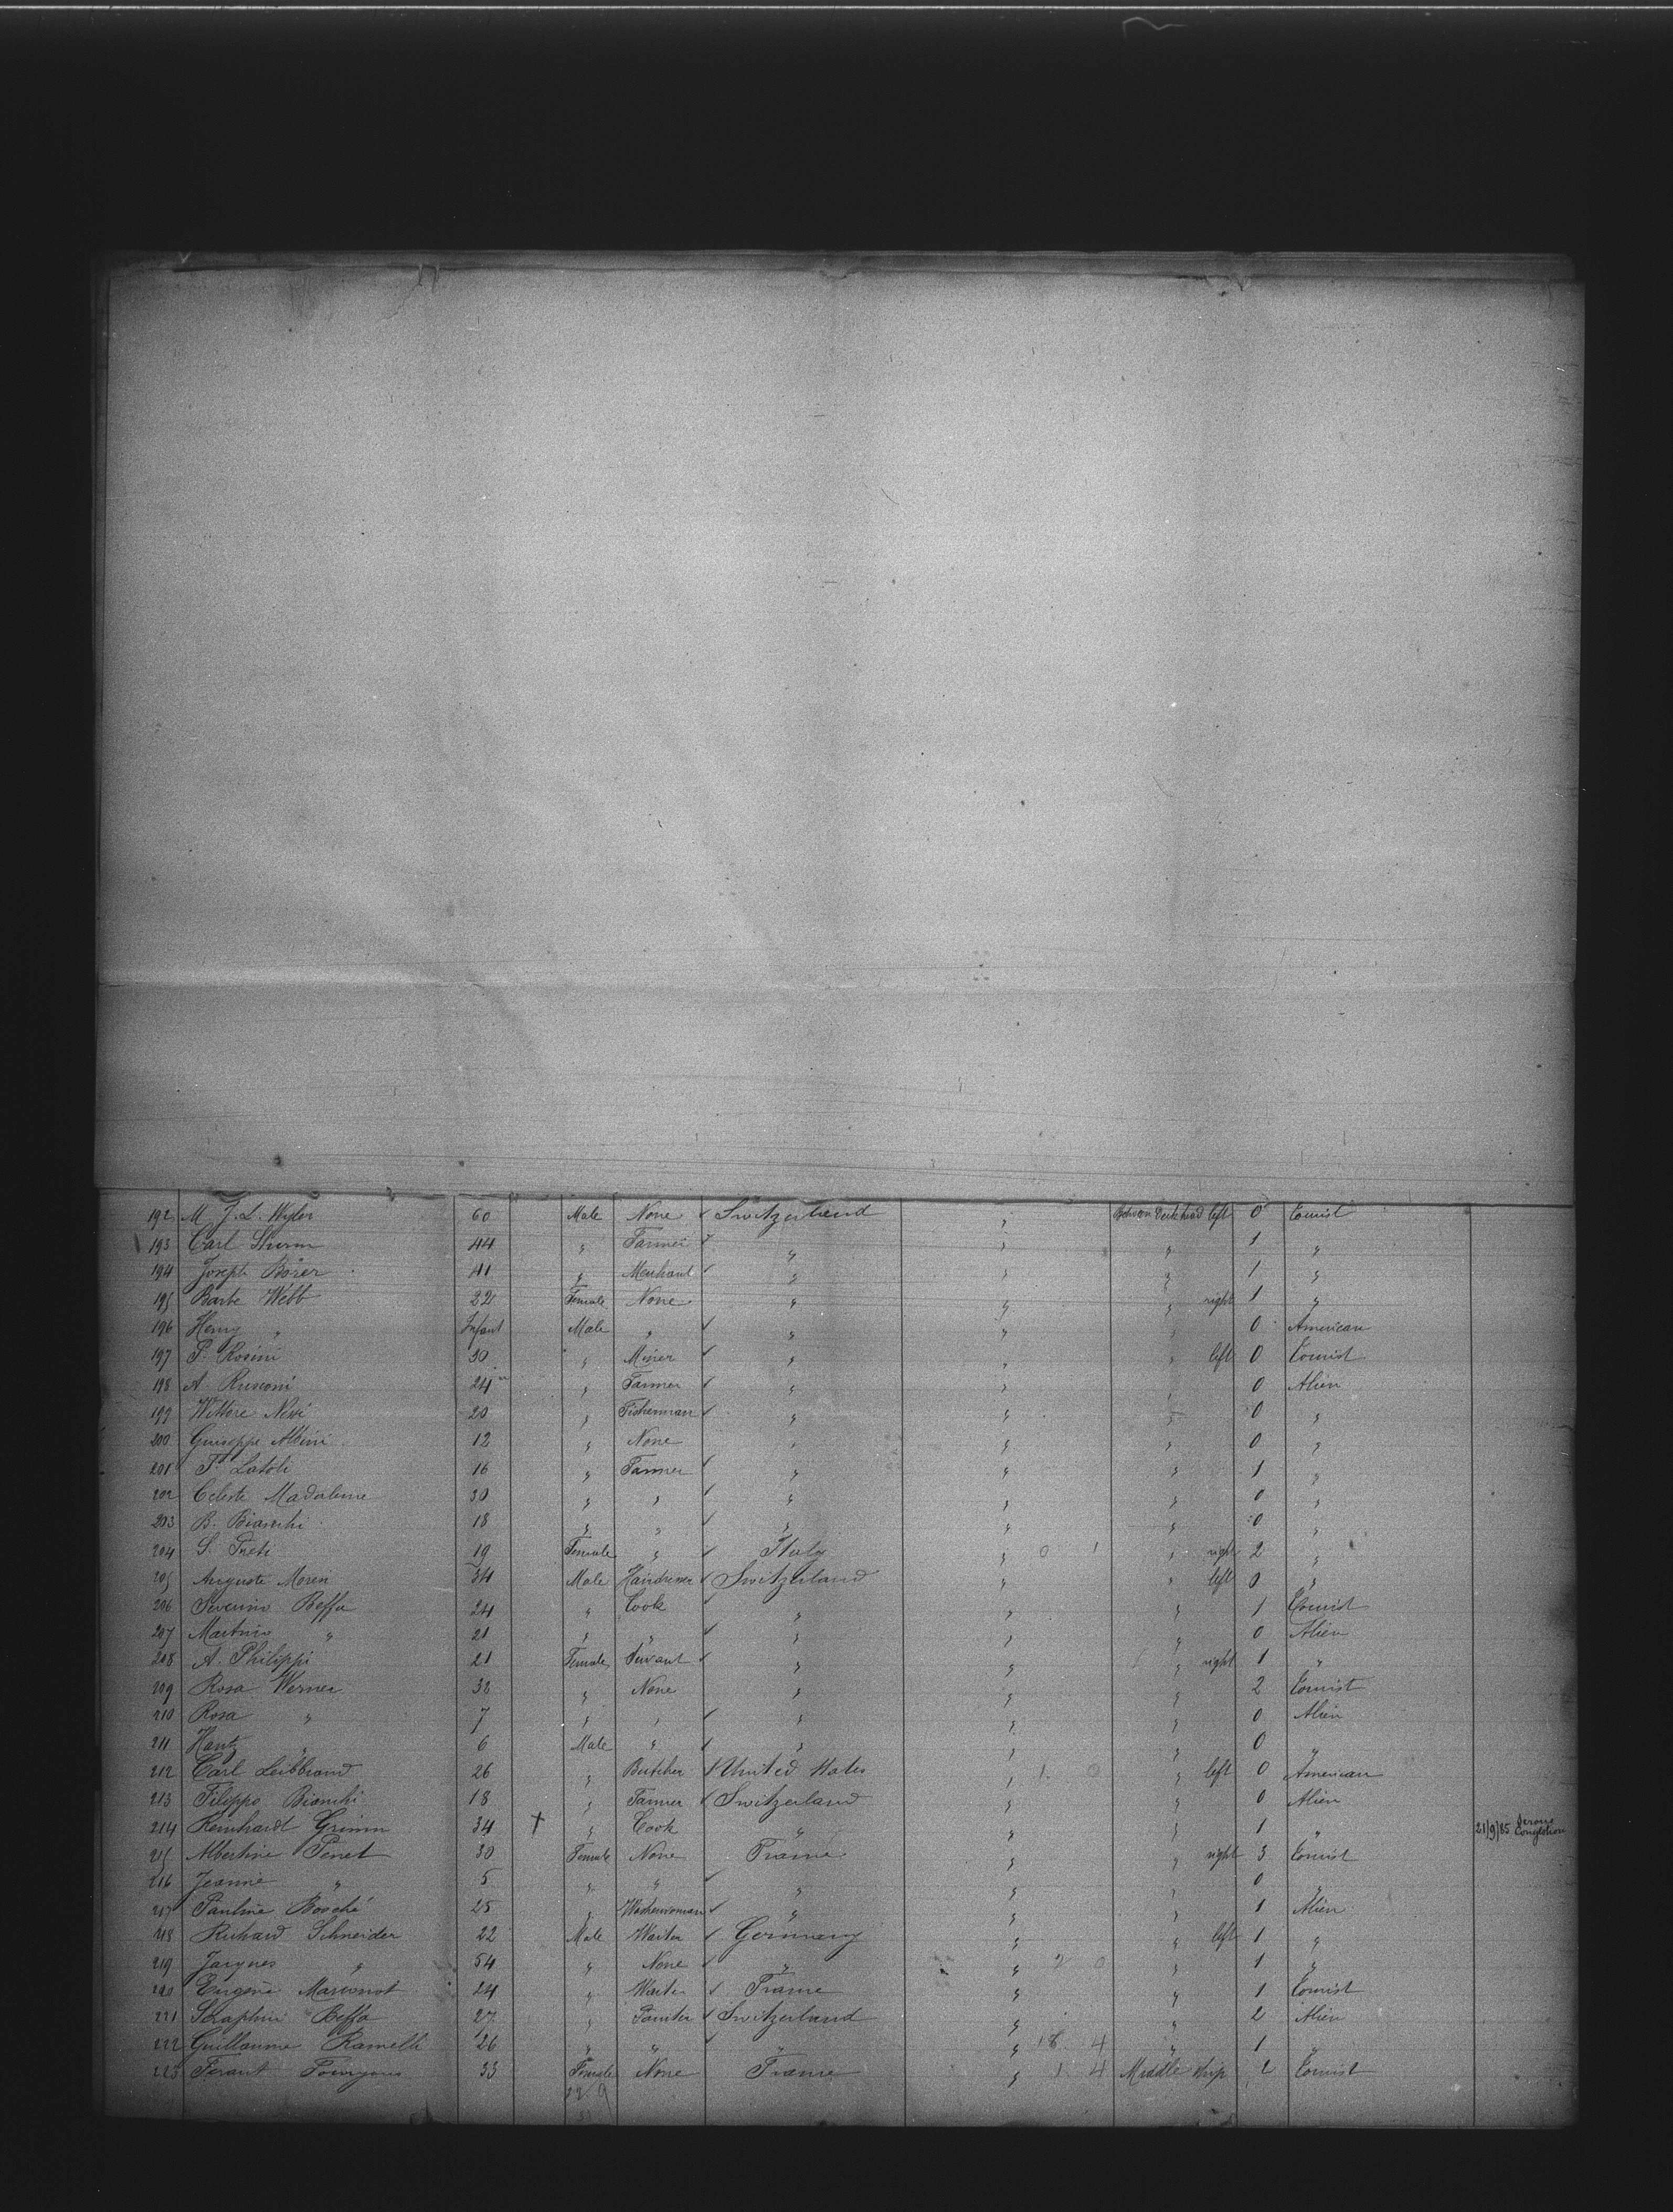 192 M J. L. Wyler 60 Male None ✓ Switzerland " Between Deck head left 0 Tourist
193 Carl Sturm 44 " Farmer ✓ " " " 1 "
194 Joseph Borer 41 " Merchant ✓ " " " 1 "
195 Barbe Webb 22 Female None " " " right 1 "
196 Henry " Infant Male " ✓ " " " 0 American
197 P. Rosini 30 " Miner ✓ " " " left 0 Tourist
198 A. Rusconi 24 " Farmer ✓ " " " 0 Alien
199 Vittore Nessi 20 " Fisherman ✓ " " " 0 "
200 Giuseppe Albini 12 " None " " " 0 "
201 F. Latoli 16 " Farmer ✓ " " " 1 "
202 Celeste Madalene 30 " " ✓ " " " 0 "
203 B. Bianchi 18 " " ✓ " " " 0 "
204 S. 19 Female " ✓ Italy " 0 1 " right 2 "
205 Auguste Moren 34 Male Hairdresser ✓ Switzerland " " left 0 "
206 Severino Beffa 24 " Cook ✓ " " " 1 Tourist
207 Martino " 21 " " ✓ " " " 0 Alien
208 A. Philippi 21 Female Servant ✓ " " " right 1 "
209 Rosa Werner 32 " None " " " 2 Tourist
210 Rosa " 7 " " ✓ " " " 0 Alien
211 Hantz " 6 Male " ✓ " " " 0 "
212 Carl Leibbrand 26 " Butcher ✓ United States " 1 0 " left 0 American
213 Filippo Bianchi 18 " Farmer ✓ Switzerland " " 0 Alien
214 Reinhardt Grimm 34 † " Cook " " " 1 " 21/9/85 Serous Congestion
215 Albertine Penet 30 Female None France " " right 3 Tourist
216 Jeanne " 5 " " ✓ " " " 0 "
217 Pauline Bosché 25 " Washerwoman ✓ " " " 1 Alien
218 Richard Schneider 22 Male Waiter ✓ Germany " " left 1 "
219 Jacques " 54 " None ✓ " " 2 0 " 1 "
220 Eugene Marconnot 24 " Waiter ✓ France " " 1 Tourist
221 Seraphin Beffa 27 " Painter ✓ Switzerland " " 2 Alien
222 Guillaume Ramelli 26 " " ✓ " " 18 4 " 1 "
223 Ferant 33 Female None France " 1 4 Middle ship 2 Tourist
22 9